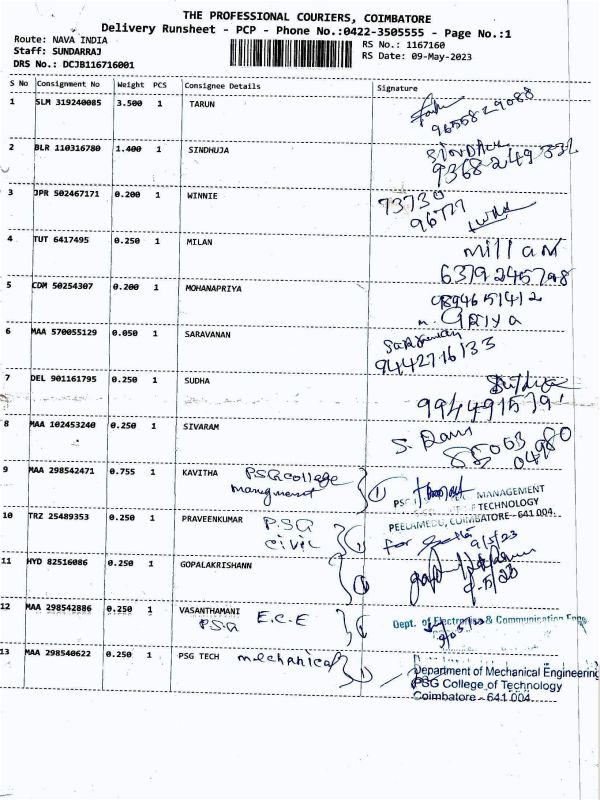 THE PROFESSIONAL COURIERS, COIMBATORE
Delivery Runsheet - PCP - Phone No.:0422-3505555 - Page No.:1
Route: NAVA INDIA
Staff: SUNDARRAJ
DRS No.: DCJB116716001
RS No.: 1167160
RS Date: 09-May-2023
S No Consignment No Weight PCS Consignee Details Signature
1 SLM 319240085 3.500 1 TARUN
9655829088
2 BLR 110316780 1.400 1 SINDHUJA
9368249332
3 JPR 502467171 0.200 1 WINNIE
73730
96777
4 TUT 6417495 0.250 1 MILAN
millan
6379245798
5 CDM 50254307 0.200 1 MOHANAPRIYA
0894651412
m. Priya
6 MAA 570055129 0.050 1 SARAVANAN
9442716133
7 DEL 901161795 0.250 1 SUDHA
8 MAA 102453240 0.250 1 SIVARAM
S. Ram
85063
04980
9 MAA 298542471 0.755 1 KAVITHA PSG College
1 MANAGEMENT
TECHNOLOGY
PEELAMEDU, COIMBATORE - 641 004.
10 TRZ 25489353 0.250 1 PRAVEENKUMAR PSG
civil
for
9/5/23
11 HYD 82516086 0.250 1 GOPALAKRISHANN
12 MAA 298542886 0.250 1 VASANTHAMANI E.C.E
PSG
Dept. of Electronics & Communication Engg
13 MAA 298540622 0.250 1 PSG TECH mechanical
1
Department of Mechanical Engineering
PSG College of Technology
Coimbatore - 641 004.